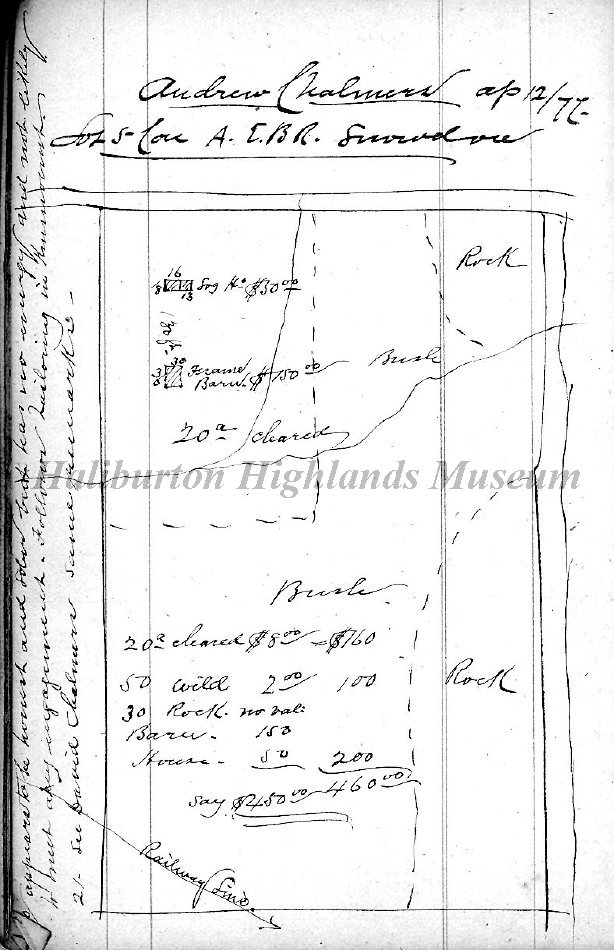 Andrew Chalmers ap 12/77
Lot 5 Con A. E.B.R. Snowdon
Rock
16
18 13 Log Ho $30.00
30
30 Frame
Barn $150.00
Bush
20a cleared
Haliburton Highlands Museum
Bush
20a cleared $8.00 = $160
50 wild 2.00 100
30 Rock no val:
Barn - 150
House - 50 200
460.00
Say $450.00
Rock
Railway Line
appears to be honest and sober but has no energy and not likely
to meet any engagement - Follows tailoring in Kinmount -
21 See David Chalmers same remarks -